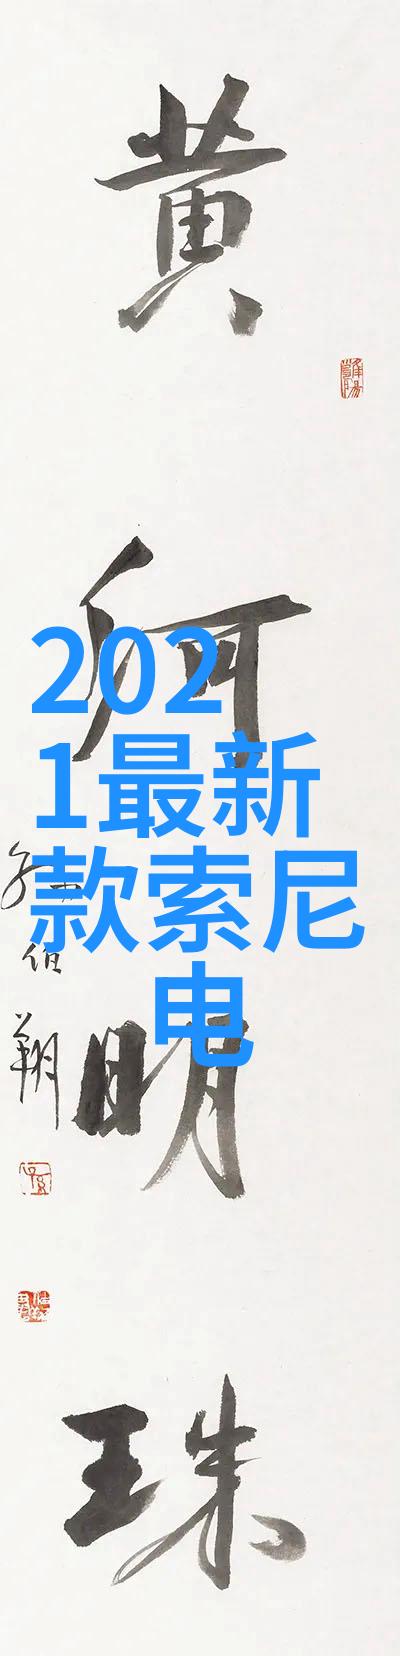 黄
河
明
珠
孙
伯
翔
202
1最新
款索尼
电